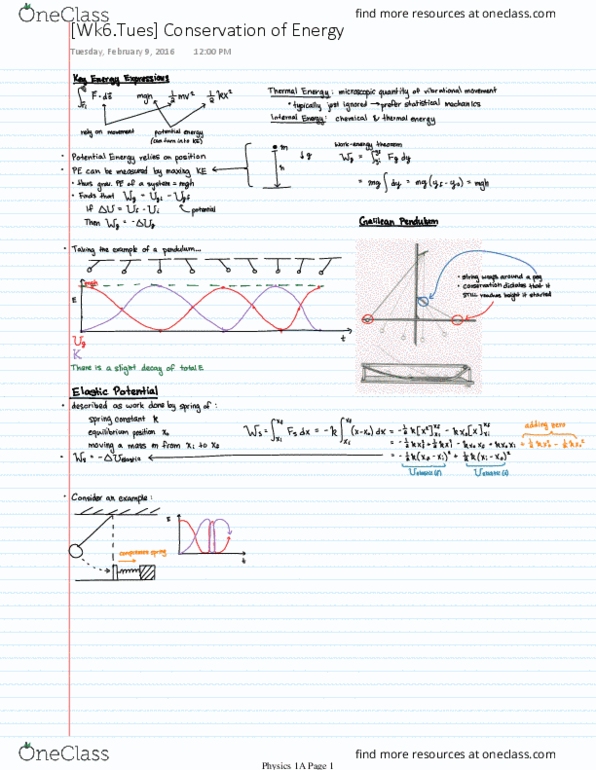 OneClass
find more resources at oneclass.com
[Wk6.Tues] Conservation of Energy
Tuesday, February 9, 2016 12:00 PM
Key Energy Expressions
∫ F·ds mgh ½mv² ½kx²
rely on movement
potential energy
(can turn into KE)
Thermal Energy: microscopic quantity of vibrational movement
• typically just ignored → prefer statistical mechanics
Internal Energy: chemical & thermal energy
• Potential Energy relies on position
• PE can be measured by maxing KE
• thus grav. PE of a system = mgh
• Finds that Wg = Ugi - Ugf
If ΔU = Uf - Ui
potential
Then Wg = -ΔUg
m
h
↓g
Work-energy theorem
Wg = ∫ Fg dy
= mg ∫ dy = mg(yf - y0) = mgh
Galilean Pendulum
• string wraps around a peg
• conservation dictates that it
STILL reaches height it started
• Taking the example of a pendulum...
mgh
E
t
Ug
K
There is a slight decay of total E
Elastic Potential
• described as work done by spring of:
spring constant k
equilibrium position x0
moving a mass m from xi to xf
• Ws = -ΔUelastic
Ws = ∫ Fs dx = -k ∫ (x-x0) dx = -½k[x²] - kx0[x]
adding zero
= -½k(xf - xi)² + ½k(xi - x0)²
Uelastic(f) Uelastic(i)
• Consider an example:
compresses spring
E
t
OneClass
find more resources at oneclass.com
Physics 1A Page 1